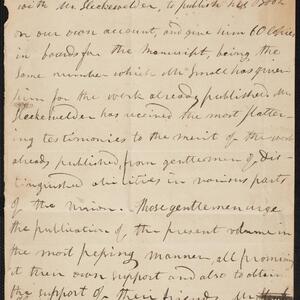 with Mr. Heckewelder, to publish his Book
on our own account, and give him 60 Copies
in boards for the Manuscript, being the
same number which Mr Small has given
him for the work already published. Mr
Heckewelder has received the most flatter-
ing testimonies to the merit of the work
already published, from gentlemen of dis-
tinguished abilities in various parts
of the union. Those gentlemen urge
the publication of the present volume in
the most pressing manner, all promising
it their own support and also to obtain
the support of their friends.